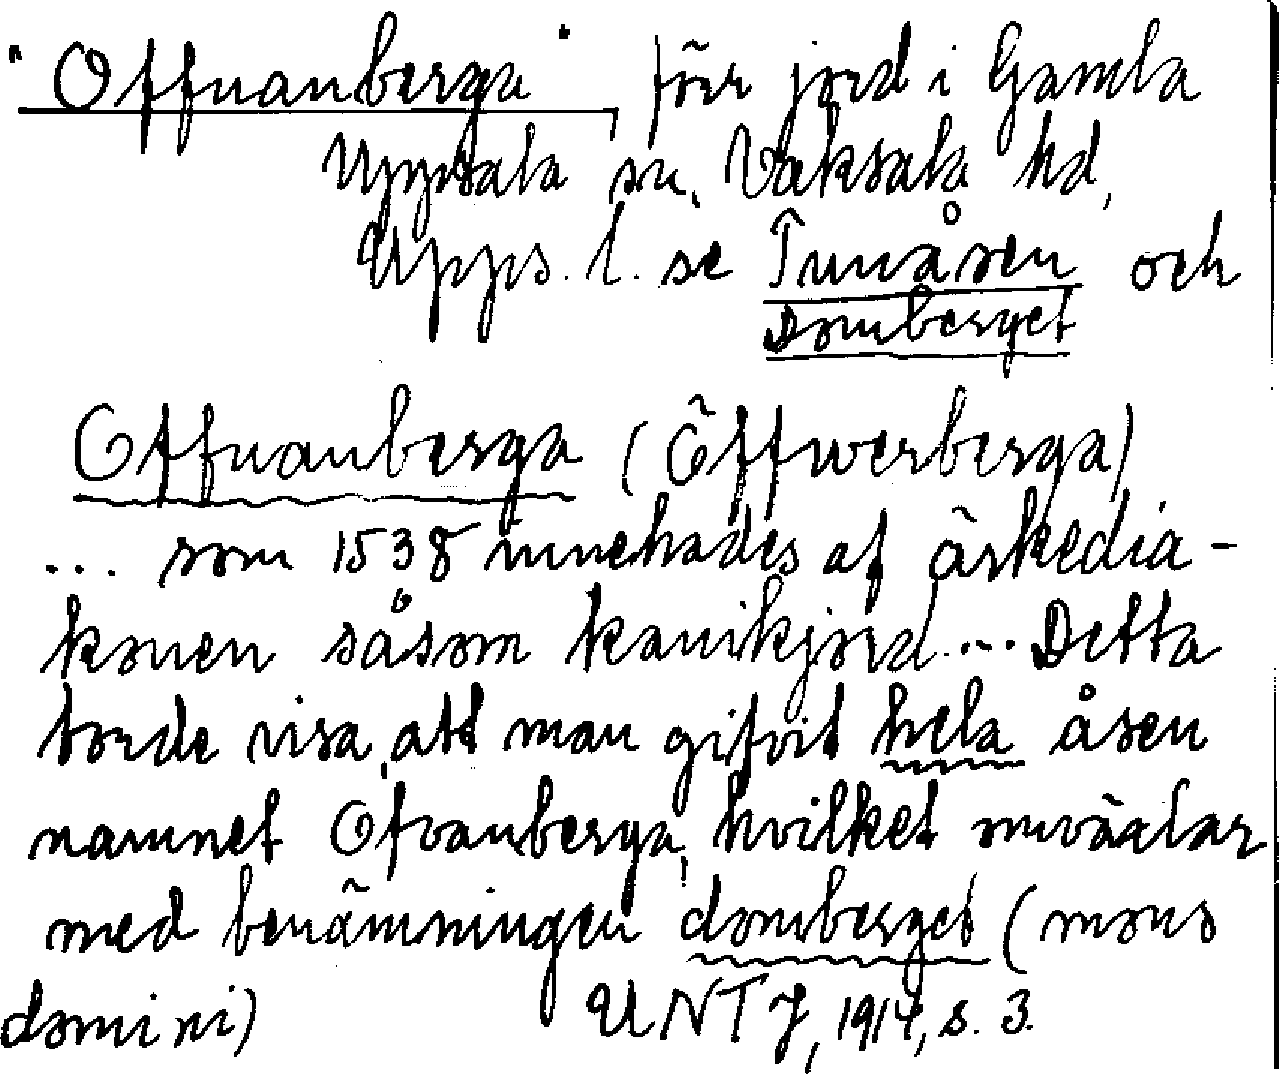 "Offuanberga", förr jord i Gamla
Uppsala sn, Vaksala hd,
Upps. l. se Tunåsen och
Domberget
Offuanberga (Öffwerberga)
... som 1538 innehades af ärkedia-
konen såsom kanikjord... Detta
torde visa, att man gifvit hela åsen
namnet Ofvanberga, hvilket omväxlar
med benämningen domberget (mons
domini) UNTJ, 1914, s. 3.